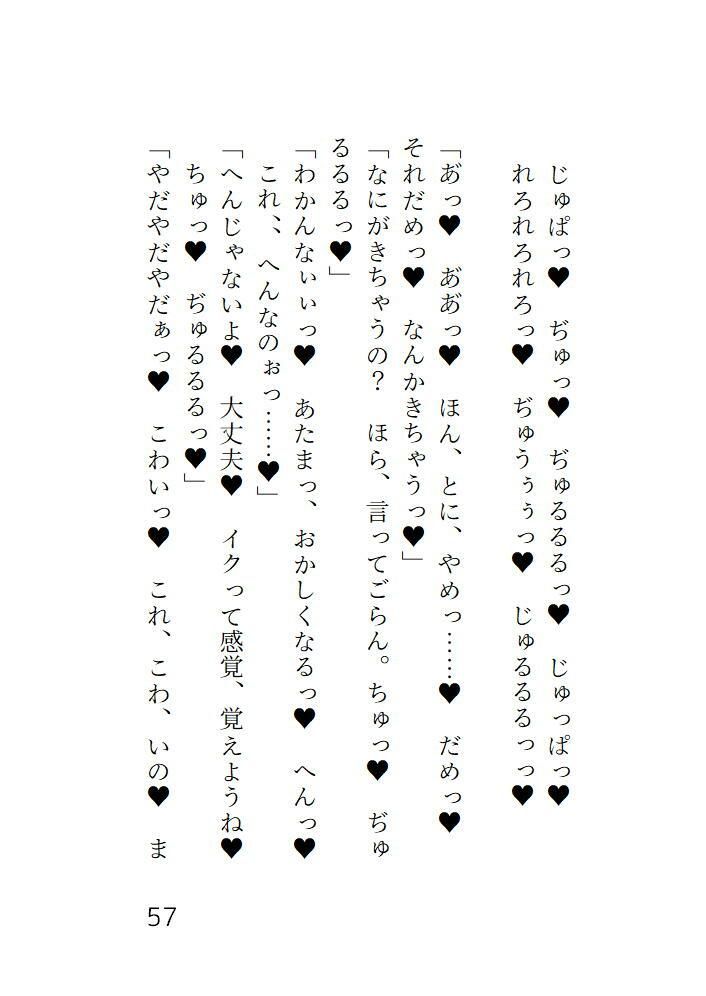 じゅぱっ♥　ぢゅっ♥　ぢゅるるるっ♥　じゅっぱっ♥
れろれろれろっ♥　ぢゅうぅぅっ♥　じゅるるるっっ♥
「あ゙っ♥　あ゙あ゙っ♥　ほん、とに、やめっ……♥　だめっ♥
それだめっ♥　なんかきちゃうっ♥」
「なにがきちゃうの？　ほら、言ってごらん。ちゅっ♥　ぢゅ
るるるっ♥」
「わかんなぃぃっ♥　あたまっ、おかしくなるっ♥　へんっ♥
これ、、へんなのぉっ……♥」
「へんじゃないよ♥　大丈夫♥　イクって感覚、覚えようね♥
ちゅっ♥　ぢゅるるるっ♥」
「やだやだやだぁっ♥　こわいっ♥　これ、こわ、いの♥　ま
57